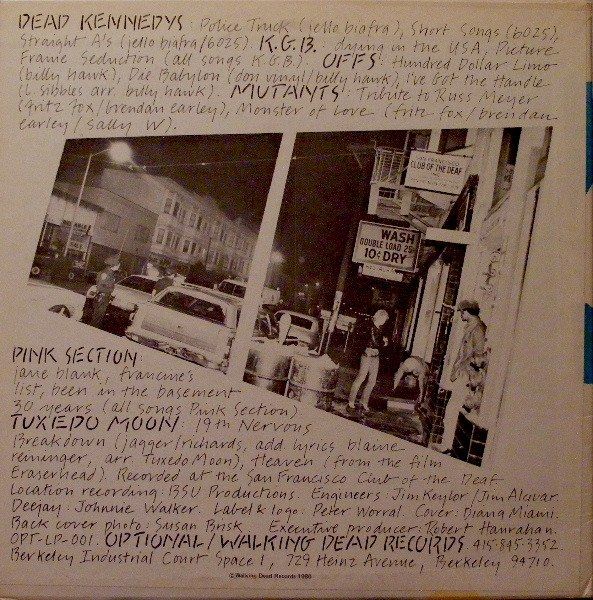 DEAD KENNEDYS: Police Truck (jello biafra), Short Songs (6025),
Straight A's (jello biafra/6025). K.G.B.: dying in the USA, Picture
Frame Seduction (all songs K.G.B.). OFFS: Hundred Dollar Limo
(billy hawk), Die Babylon (don vinyl/billy hawk), I've Got the Handle
(L. Sibbles arr. billy hawk). MUTANTS: Tribute to Russ Meyer
(fritz fox/brendan earley), Monster of Love (fritz fox/brendan
earley/Sally W).
SAN FRANCISCO
CLUB OF THE DEAF
WASH
DOUBLE LOAD 25¢
10¢ DRY
PINK SECTION:
jane blank, francine's
list, been in the basement
30 years (all songs Pink Section)
TUXEDO MOON: 19th Nervous
Breakdown (jagger/richards, add. lyrics blaine
reininger, arr. Tuxedo Moon), Heaven (from the film
Eraserhead). Recorded at the San Francisco Club of the Deaf
Location recording: BSU Productions Engineers: Jim Keylor/Jim Alcivar.
Deejay: Johnnie Walker. Label & logo: Peter Worral Cover: Diana Miami.
Back cover photo: Susan Brisk Executive producer: Robert Hanrahan.
OPT-LP-001. OPTIONAL/WALKING DEAD RECORDS 415-845-3352.
Berkeley Industrial Court Space 1, 729 Heinz Avenue, Berkeley 94710.
© Walking Dead Records 1980